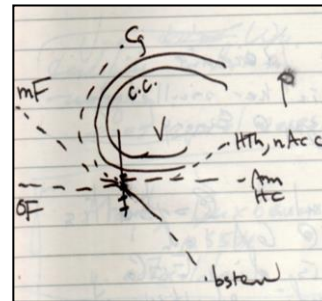 Cg
mF
C.C.
V
HTh, nAcc
Am
HC
OF
bstem